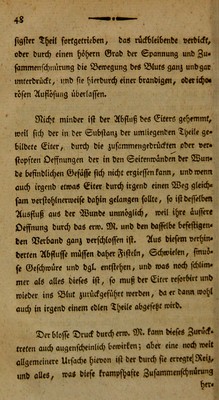 48
sigster Theil fortgetrieben, das rückbleibende verdickt,
oder durch einen höhern Grad der Spannung und Zu-
sammenschnürung die Bewegung des Bluts ganz und gar
unterdrückt, und sie hierdurch einer brandigen, oder icho-
rösen Auflösung überlassen.
Nicht minder ist der Abfluß des Eiters gehemmt,
weil sich der in der Substanz der umliegenden Theile ge-
bildete Eiter, durch die zusammengedrückten oder ver-
stopften Oeffnungen der in den Seitenwänden der Wun-
de befindlichen Gefässe sich nicht ergiessen kann, und wenn
auch irgend etwas Eiter durch irgend einen Weg gleich-
sam verstohlnerweise dahin gelangen sollte, so ist desselben
Ausfluß aus der Wunde unmöglich, weil ihre äussere
Oeffnung durch das erw. M. und den dasselbe befestigen-
den Verband ganz verschlossen ist. Aus diesem verhin-
derten Abflusse müssen daher Fisteln, Schwielen, sinuö-
se Geschwüre und dgl. entstehen, und was noch schlim-
mer als alles dieses ist, so muß der Eiter resorbirt und
wieder ins Blut zurückgeführet werden, da er dann wohl
auch in irgend einem edlen Theile abgesetzt wird.
Der blosse Druck durch erw. M. kann dieses Zurück-
treten auch augenscheinlich bewirken; aber eine noch weit
allgemeinere Ursache hiervon ist der durch sie erregte Reiz,
und alles, was diese krampfhafte Zusammenschnürung
her-